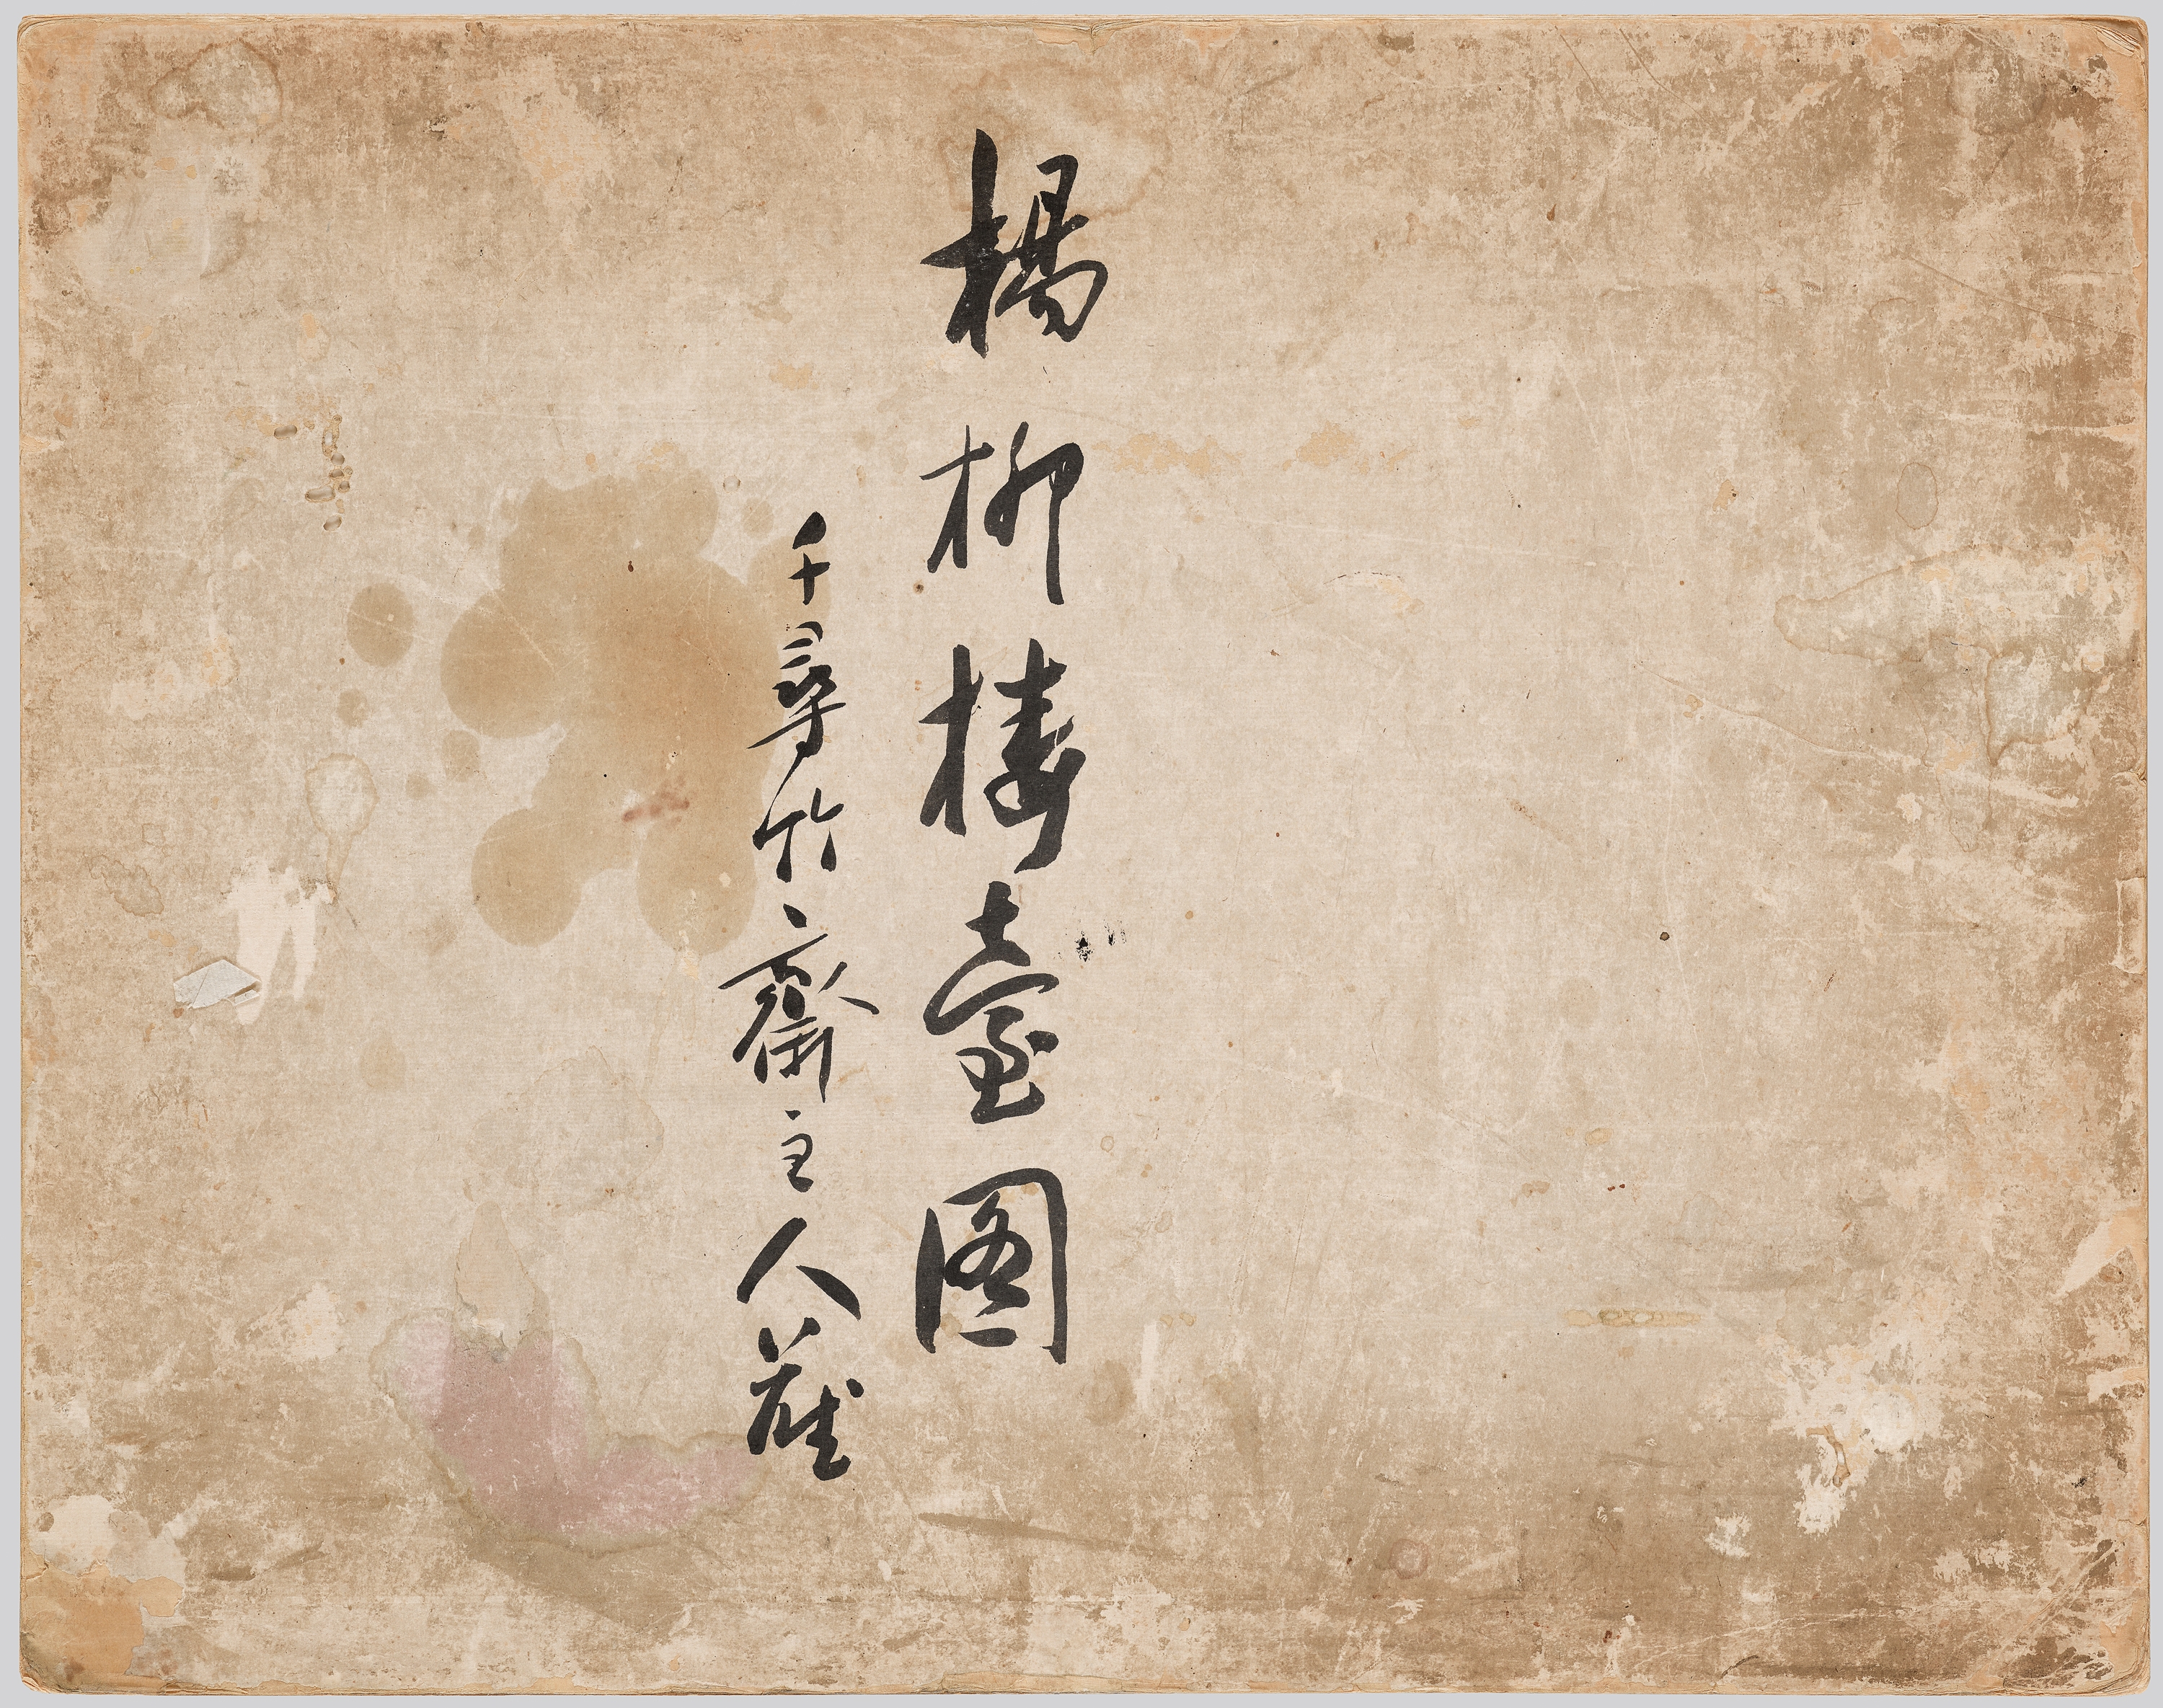 楊柳樓臺圖
千尋竹齋主人藏